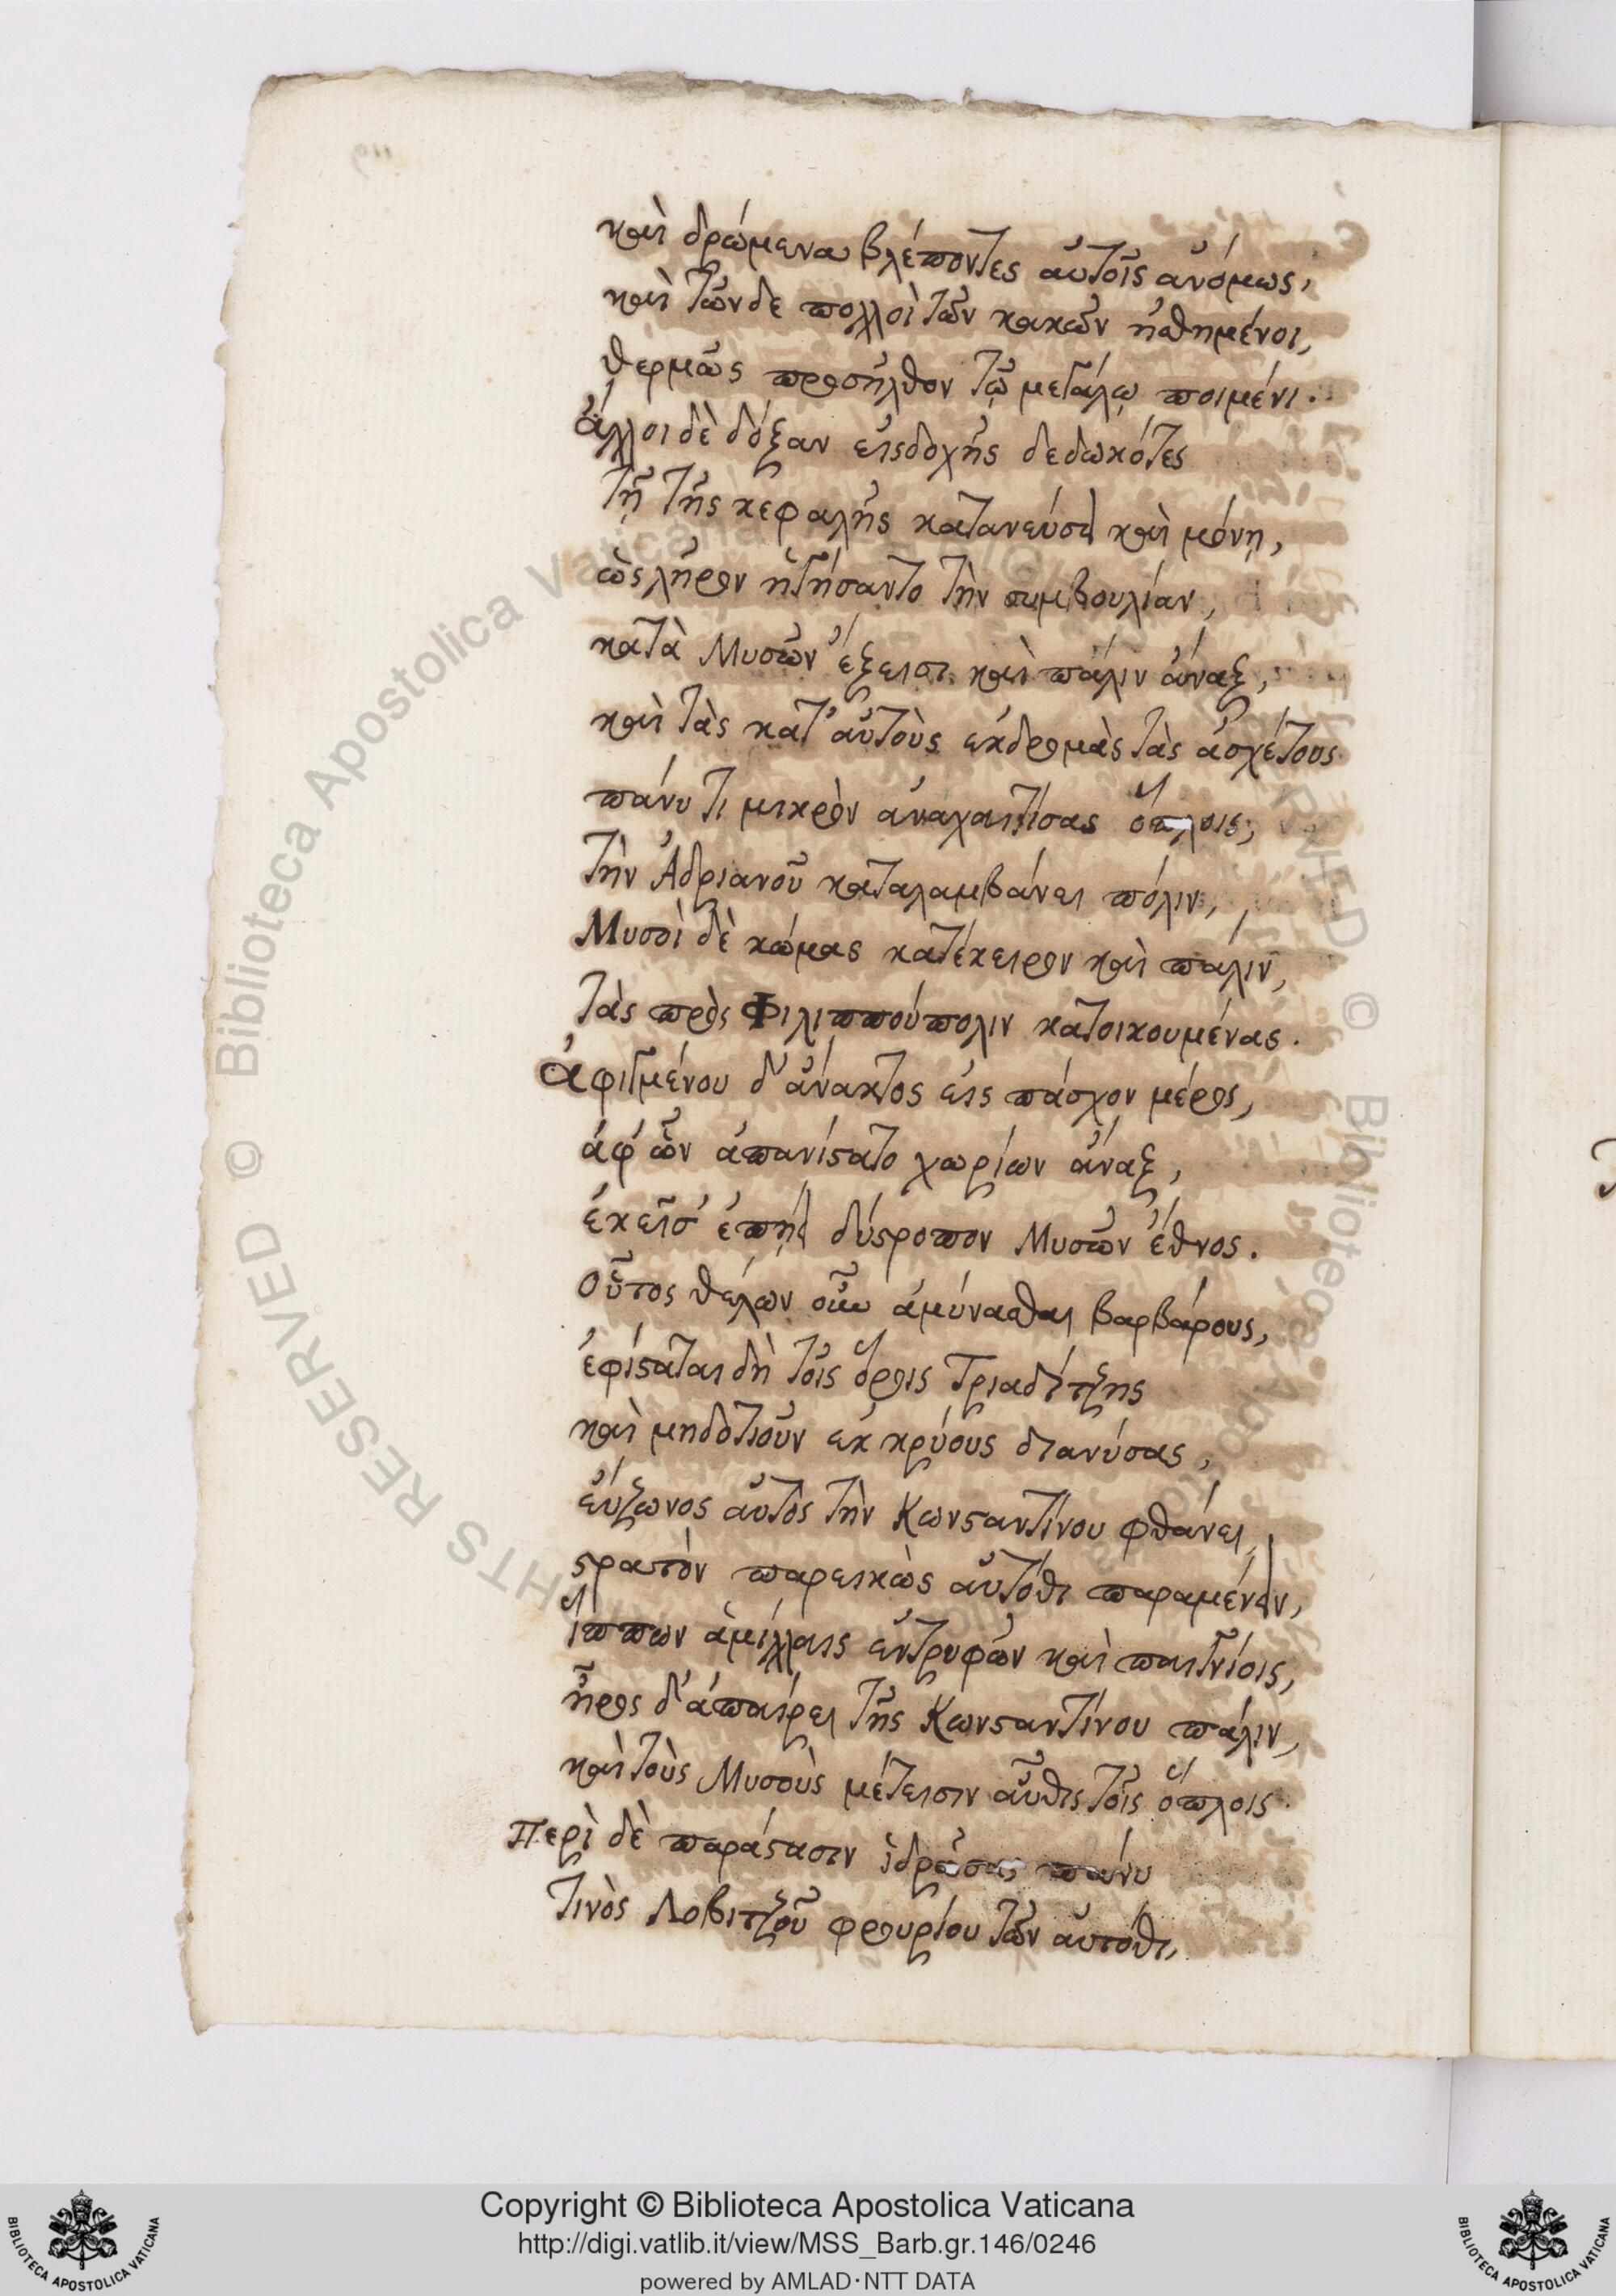 καὶ δρώμενα βλέποντες αὐτοῖς ἀνόμως,
καὶ τῶνδε πολλοὶ τῶν κακῶν ᾐσθημένοι,
θερμῶς προσῆλθον τῷ μεγάλῳ ποιμένι.
ἄλλοι δὲ δόξαν εἰσδοχῆς δεδωκότες
τῇ τῆς κεφαλῆς κατανεύσει καὶ μόνῃ,
ὡς λῆρον ἡγήσαντο τὴν συμβουλίαν,
κατὰ Μυσῶν ἔξεισι καὶ πάλιν ἄναξ,
καὶ τὰς κατ' αὐτοὺς ἐκδρομὰς τὰς ἀσχέτους
πάνυ τι μικρὸν ἀναχαιτίσας ὅπλοις,
τὴν Ἀδριανοῦ καταλαμβάνει πόλιν,
Μυσοὶ δὲ κώμας κατέκειρον καὶ πάλιν,
τὰς πρὸς Φιλιππούπολιν κατοικουμένας.
ἀφιγμένου δ' ἄνακτος εἰς πάσχον μέρος,
ἀφ' ὧν ἀπανίστατο χωρίων ἄναξ,
ἐκεῖσ' ἐπῄει δύστροπον Μυσῶν ἔθνος.
Οὗτος θέλων οὖν ἀμύνασθαι βαρβάρους,
ἐφίσταται δὴ τοῖς ὅροις Τριαδίτζης
καὶ μηδοτιοῦν ἐκ κρύους διανύσας,
εὔζωνος αὐτὸς τὴν Κωνσταντίνου φθάνει,
στρατὸν παρεικὼς αὐτόθι παραμένειν,
ἵππων ἁμίλλαις ἐντρυφῶν καὶ παιγνίοις,
ἦρος δ' ἀπαίρει τῆς Κωνσταντίνου πάλιν,
καὶ τοὺς Μυσοὺς μέτεισιν αὖθις τοῖς ὅπλοις.
Περὶ δὲ παράστασιν ἱδρώσας πάνυ
τινὸς Λοβιτζοῦ φρουρίου τῶν αὐτόθι,
Copyright © Biblioteca Apostolica Vaticana
http://digi.vatlib.it/view/MSS_Barb.gr.146/0246
powered by AMLAD·NTT DATA
BIBLIOTECA APOSTOLICA VATICANA
BIBLIOTECA APOSTOLICA VATICANA